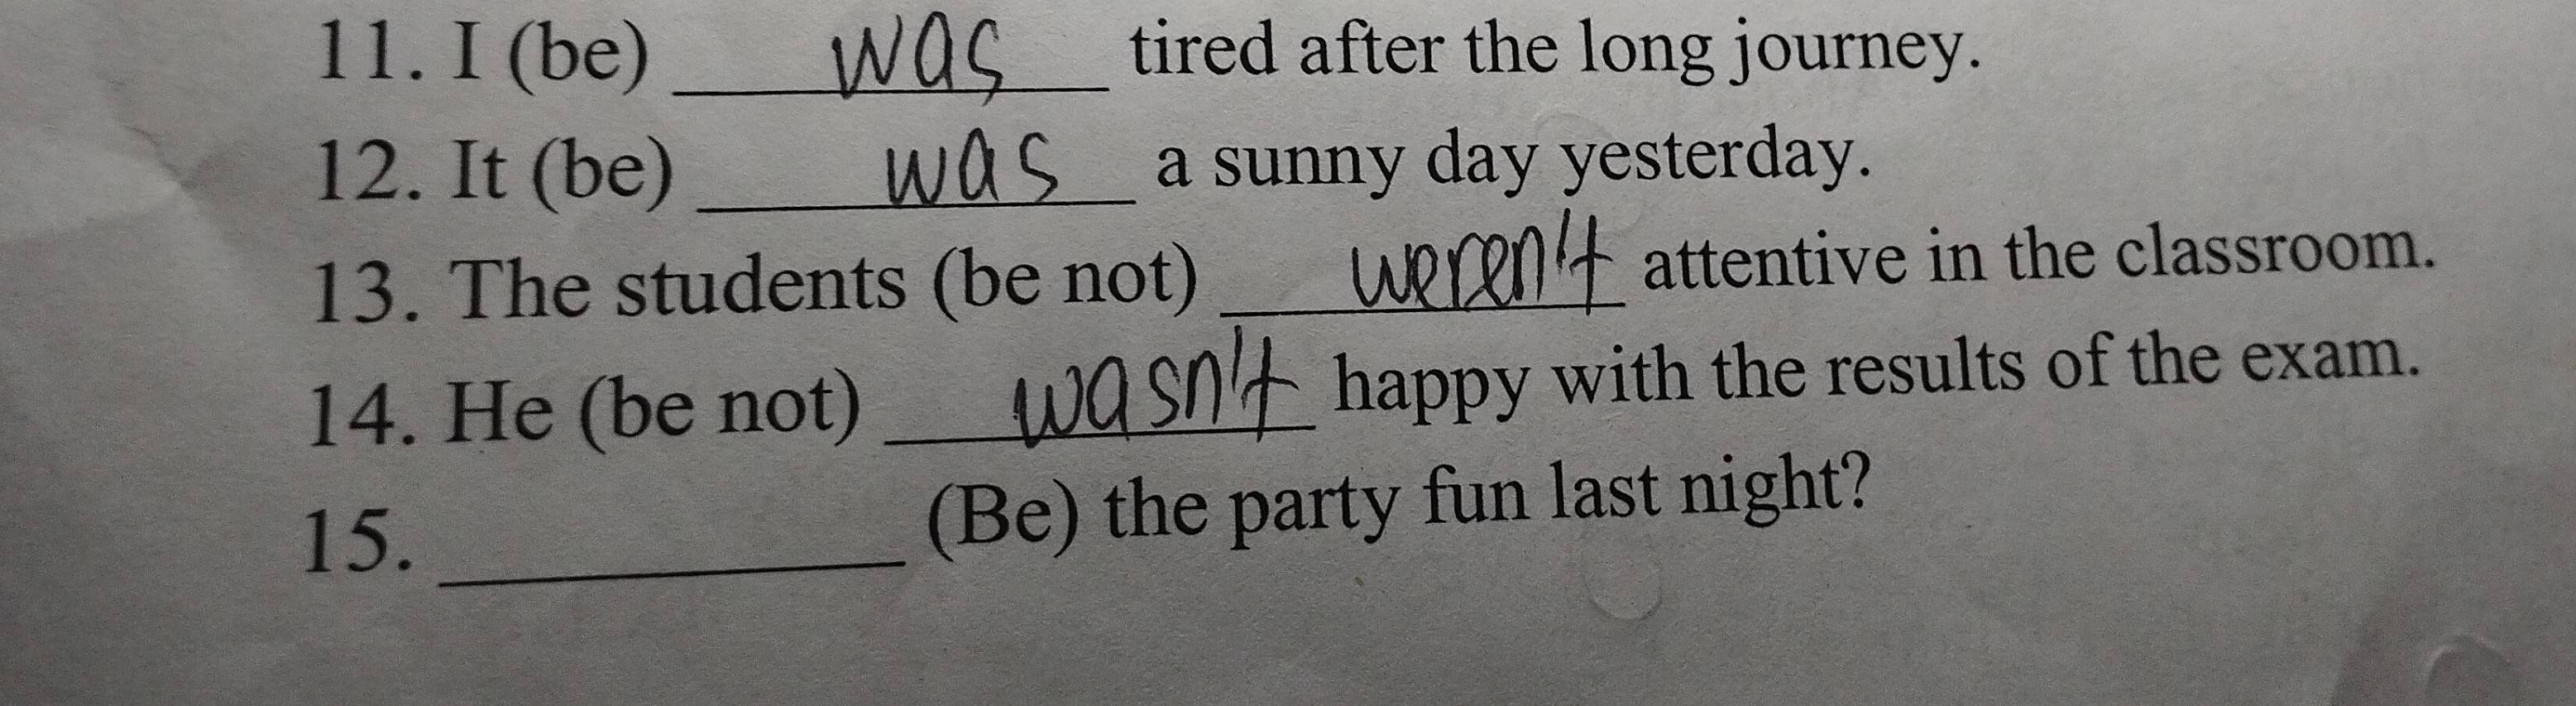 11. I (be) was tired after the long journey.
12. It (be) was a sunny day yesterday.
13. The students (be not) weren't attentive in the classroom.
14. He (be not) wasn't happy with the results of the exam.
15. __________ (Be) the party fun last night?